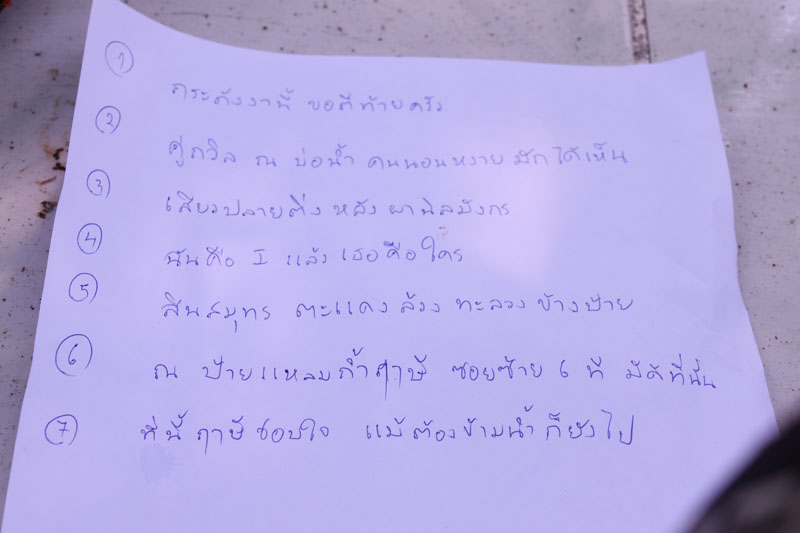 ① กระดังงานี้ ขอตีท้ายครัว
② คู่ถวิล ณ บ่อน้ำ คนนอนหงาย มักได้เห็น
③ เสียวปลายติ่ง หลัง ผานิลมังกร
④ ฉันคือ I แล้ว เธอคือใคร
⑤ สินสมุทร ตะแคง ล้วง ทะลวง ข้างป้าย
⑥ ณ ป้ายแหลมถ้ำฤาษี ซอยซ้าย 6 ที มีดีที่นั่น
⑦ ที่นี้ ฤาษี ชอบใจ แม้ต้องข้ามน้ำก็ยังไป